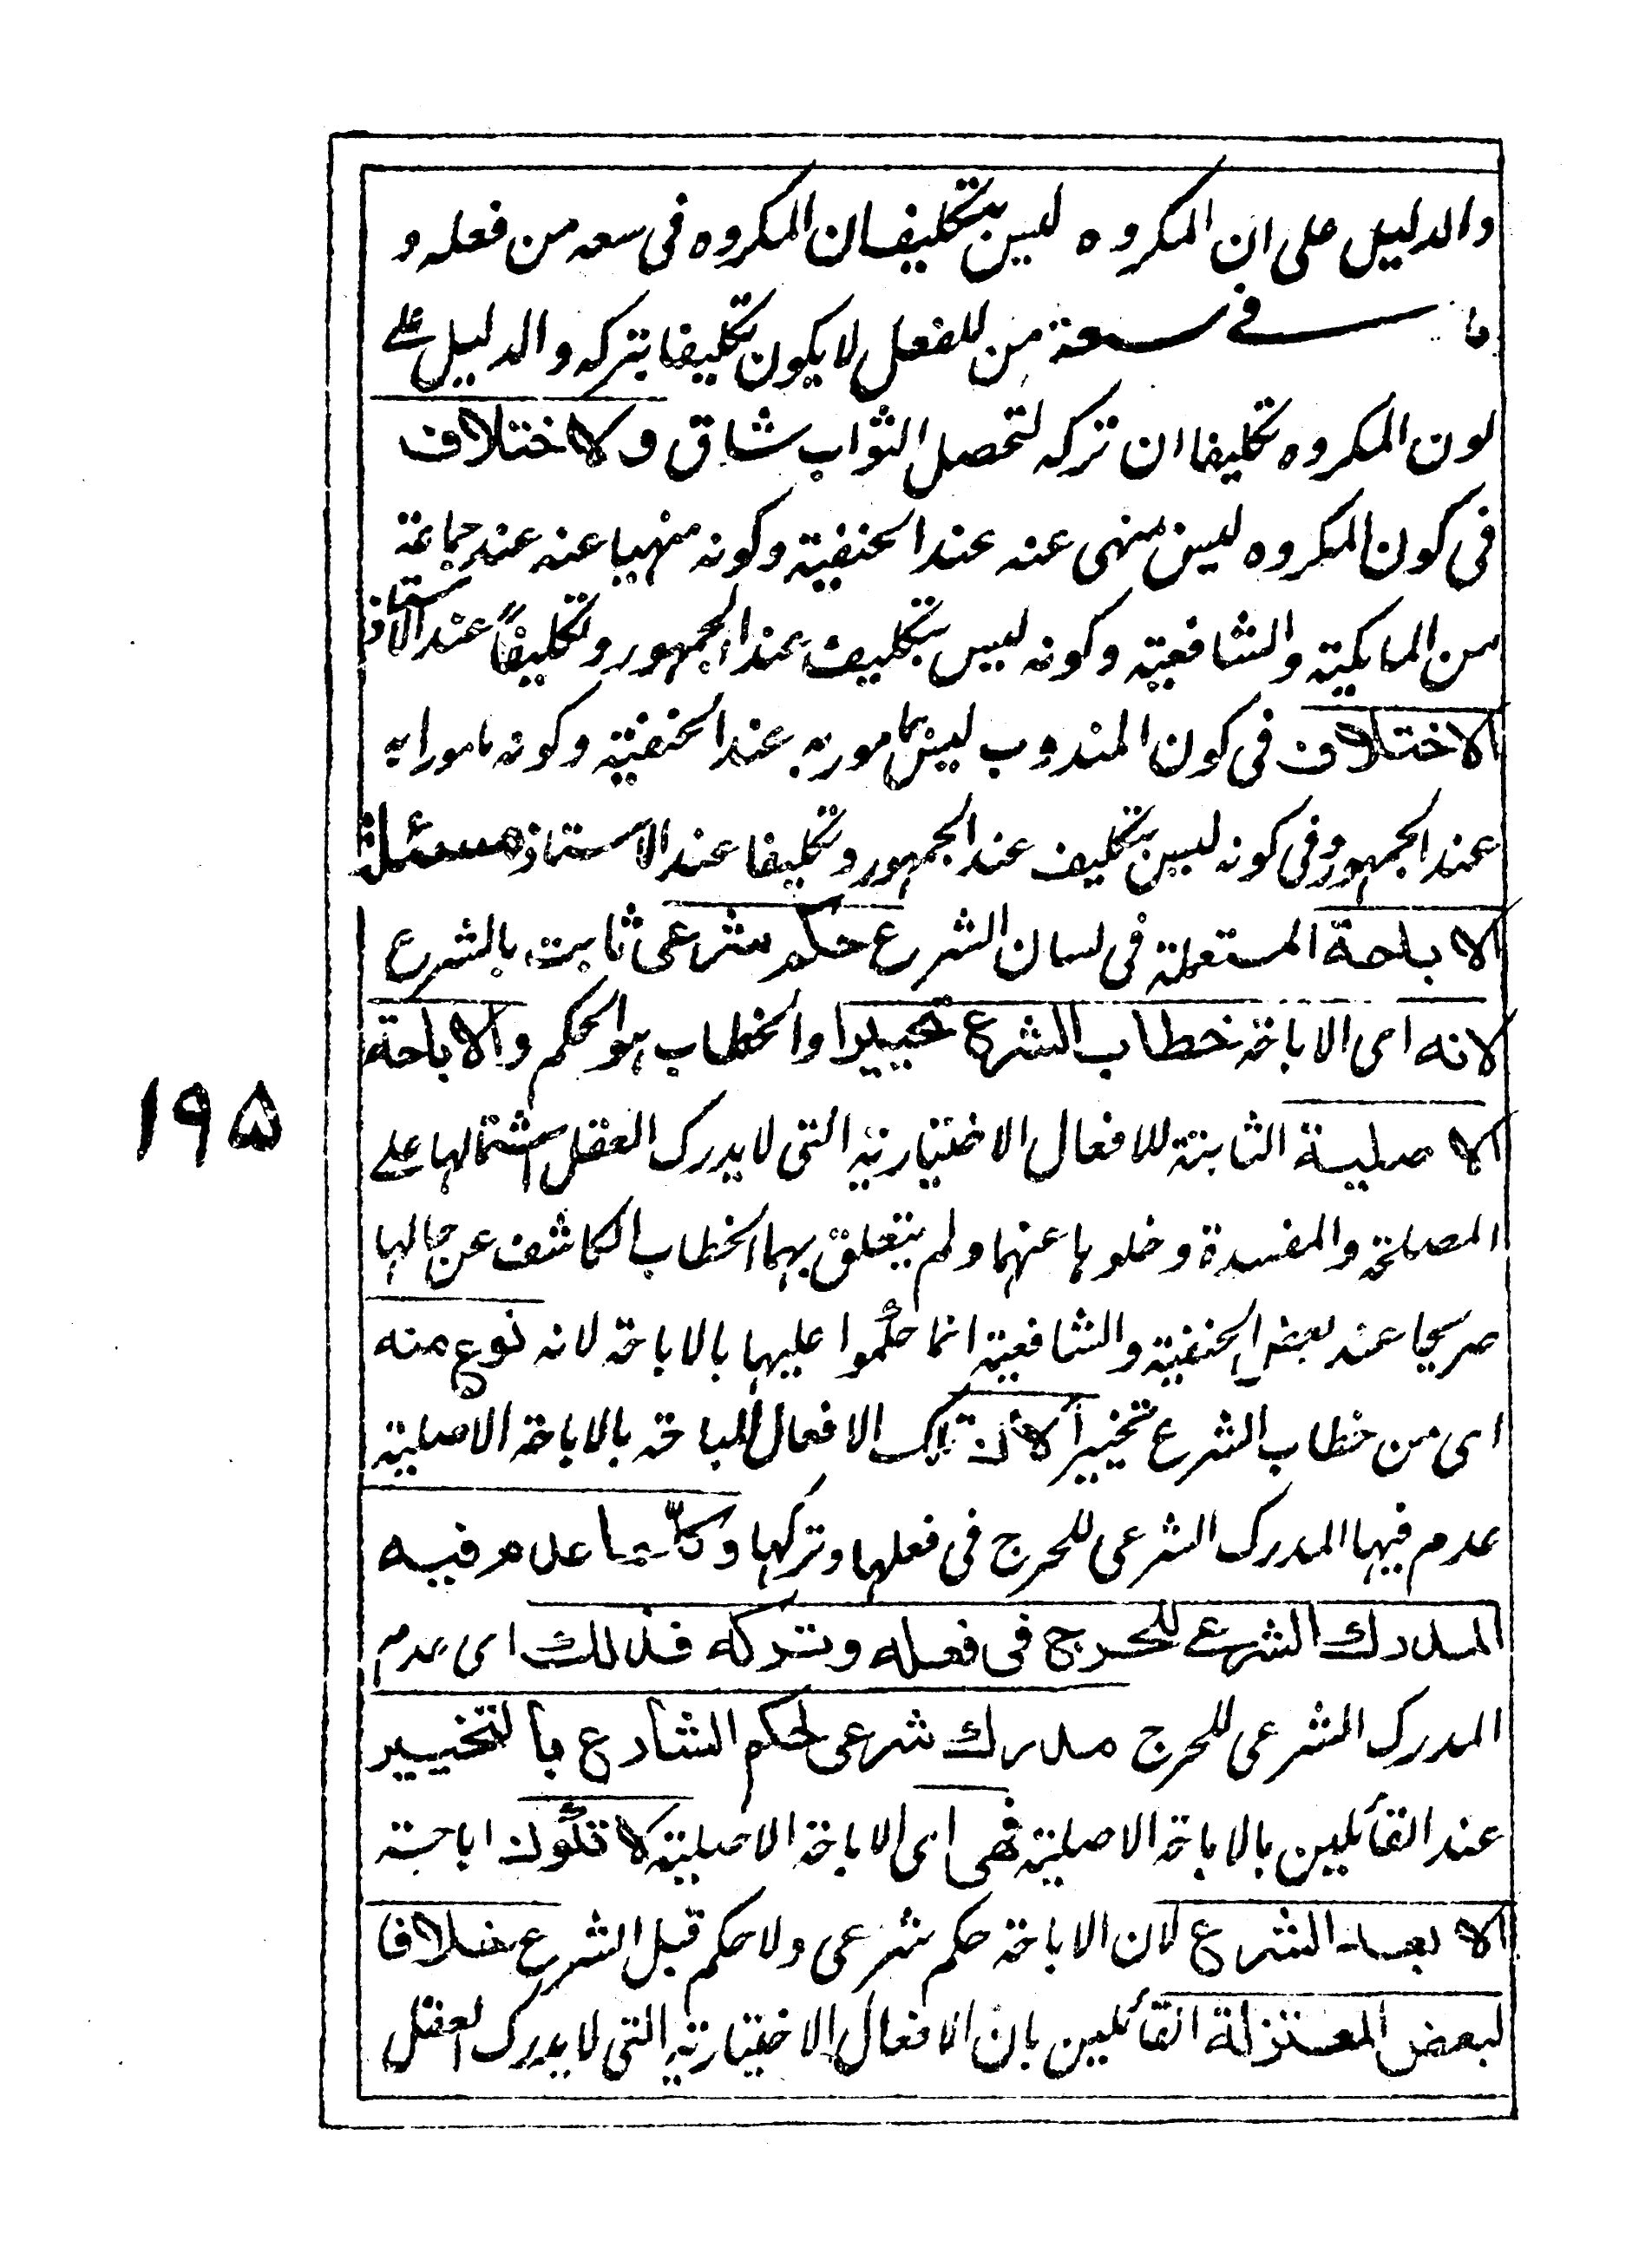 والدليل على ان المكروه ليس بتكليف ان المكروه فى سعه من فعله و
ما فى سعة من الفعل لا يكون تكليفا بتركه والدليل على
كون المكروه تكليفا ان تركه لتحصل الثواب شاق و لا ختلاف
فى كون المكروه ليس منهى عنه عند الحنفية وكونه منهيا عنه عند جماعة
من المالكية والشافعية وكونه ليس بتكليف عند الجمهور وتكليفاً عند الاستاذ
الاختلاف فى كون المندوب ليس بمامور به عند الحنفية وكونه مامورا به
عند الجمهور وفى كونه ليس بتكليف عند الجمهور وتكليفا عند الاستاذ مسئلة
الاباحة المستعملة فى لسان الشرع حكم شرعى ثابت بالشرع
لانه اى الاباحة خطاب الشرع تخييرا والخطاب هو الحكم والاباحة
الاصلية الثابتة للافعال الاختيارية التى لا يدرك العقل اشتمالها على
المصلحة والمفسدة وخلوها عنهما ولم يتعلق بهما الخطاب الكاشف عن حالها
صريحا عند بعض الحنفية والشافعية انما حكموا عليها بالاباحة لانه نوع منه
اى من خطاب الشرع تخييراً لان تلك الافعال المباحة بالاباحة الاصلية
عدم فيها المدرك الشرعى للحرج فى فعلها وتركها وكلّما عدم فيه
المدرك الشرعى للحرج فى فعله وتركه فذلك اى عدم
المدرك الشرعى للحرج مدرك شرعى لحكم الشارع بالتخيير
عند القائلين بالاباحة الاصلية فهى اى الاباحة الاصلية لا تكون اباحة
الا بعد الشرع لان الاباحة حكم شرعى ولا حكم قبل الشرع خلافا
لبعض المعتزلة القائلين بان الافعال الاختيارية التى لا يدرك العقل
١٩٥